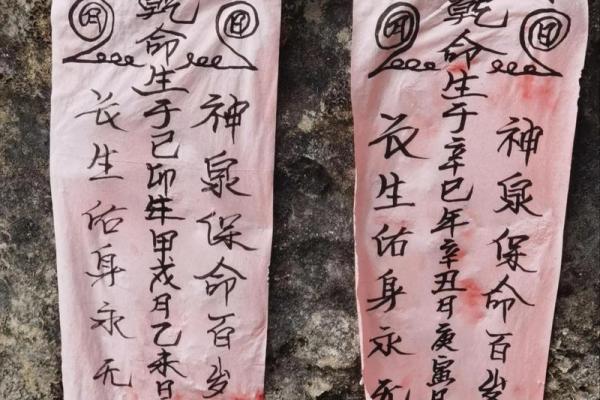 日
神泉保命百岁
乾命生于辛巳年辛丑月庚寅日
月
长生佑身永无
日
神泉保命百岁
乾命生于己卯年甲戌月乙未日
月
长生佑身永无